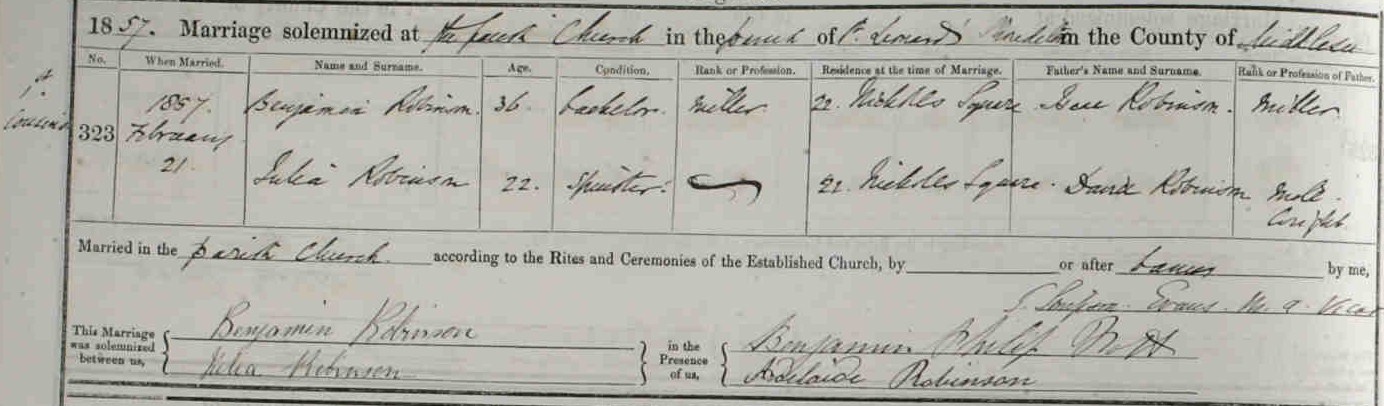 1857. Marriage solemnized at the parish Church in the parish of St. Leonards Shoreditch in the County of Middlesex
No. When Married. Name and Surname. Age. Condition. Rank or Profession. Residence at the time of Marriage. Father's Name and Surname. Rank or Profession of Father.
1st cousins
323 1857. February 21. Benjamin Robinson. 36 bachelor. Miller 22. Nichols Square Robinson. Miller
Julia Robinson 22. Spinster. 22. Nichols Square. David Robinson
Married in the parish Church. according to the Rites and Ceremonies of the Established Church, by or after banns by me,
Evans M.A. Vicar
This Marriage was solemnized between us, Benjamin Robinson in the Presence of us, Benjamin Philip
Julia Robinson Adelaide Robinson